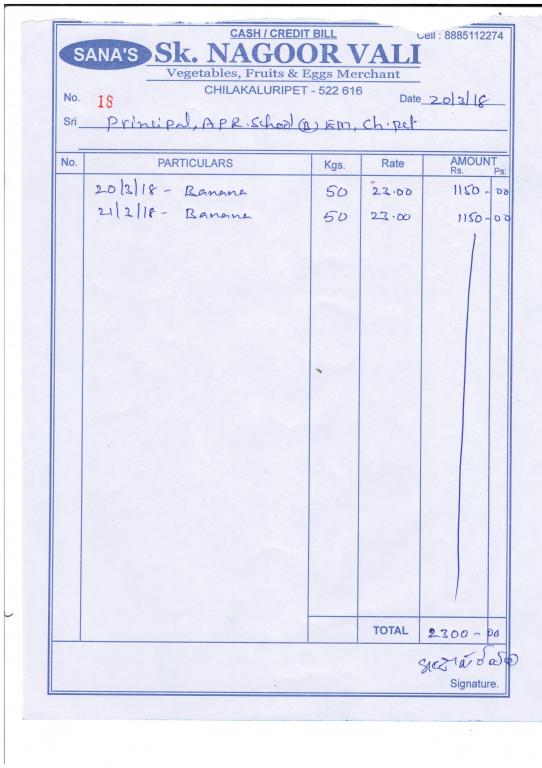 CASH / CREDIT BILL
Cell : 8885112274
SANA'S Sk. NAGOOR VALI
Vegetables, Fruits & Eggs Merchant
CHILAKALURIPET - 522 616
No. 18 Date 20/3/18
Sri Principal, A P R. School (B) EM, Ch. pet
No. PARTICULARS Kgs. Rate AMOUNT
Rs. Ps.
20/3/18 - Banana 50 23.00 1150-00
21/3/18 - Banana 50 23.00 1150-00
TOTAL 2300-00
Signature.